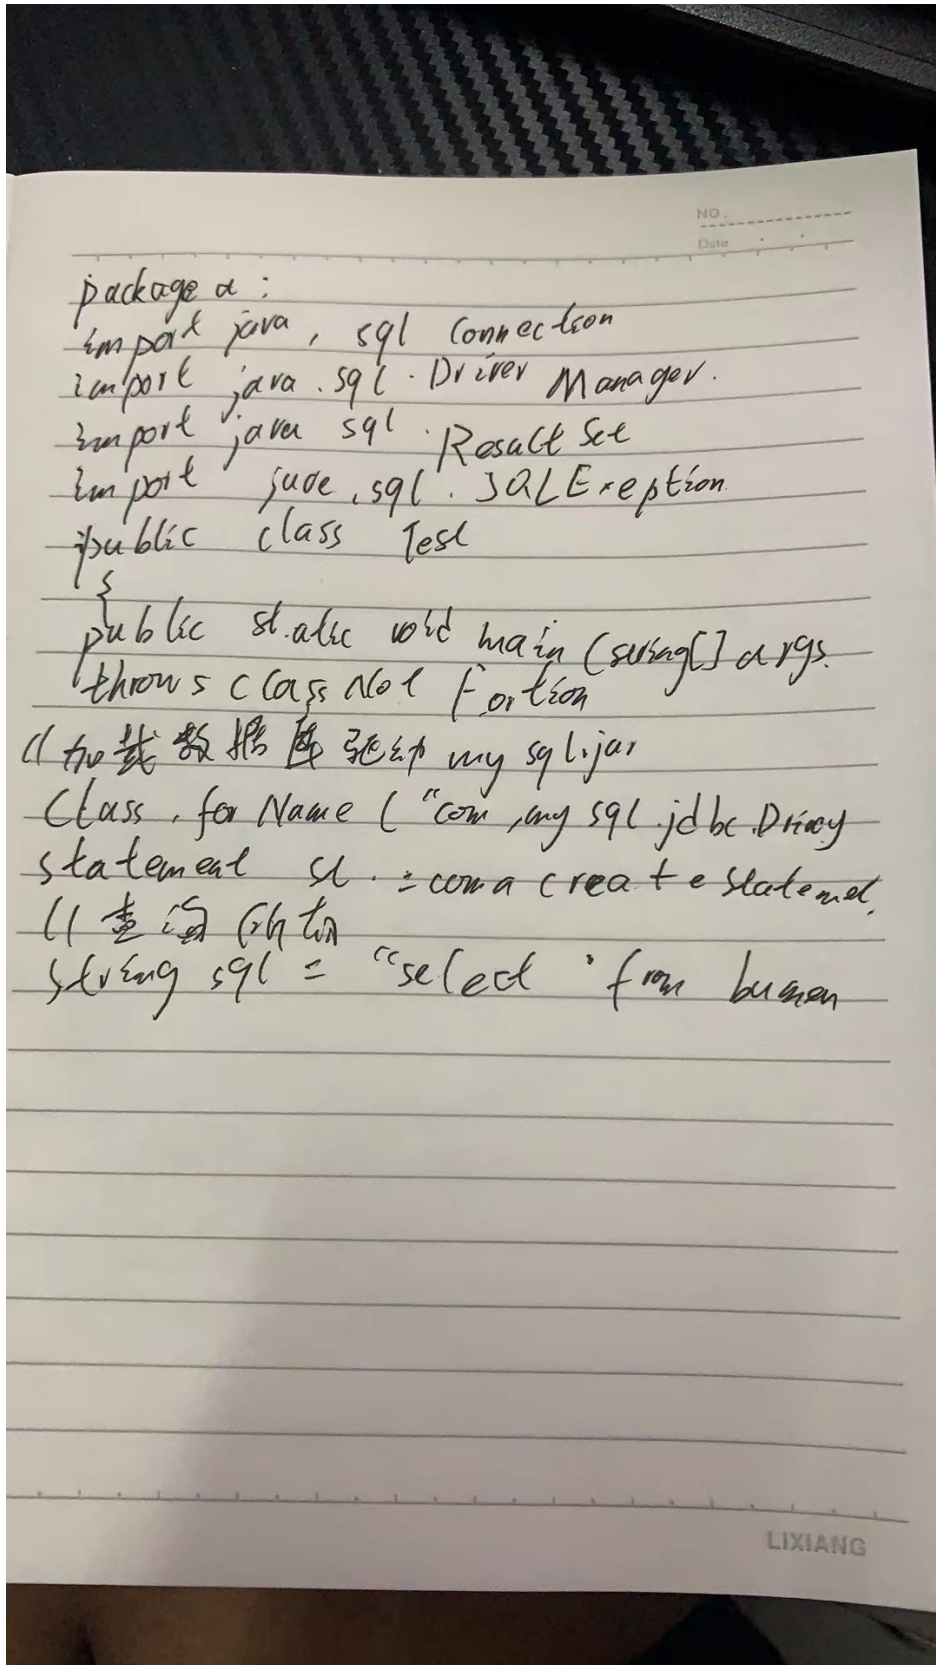 NO.
Date
package a :
import java , sql Connection
import java . sql . Driver Manager .
import java sql . Result Set
import jave . sql . SQLExeption
public class Test
{
public static void main (string[] args
throws class Not Fortion
// 加载数据库驱动 my sql.jar
Class . for Name ( "com , my sql . jdbc .
statement st . = coma create statemet.
// 查询
string sql = "select from
LIXIANG